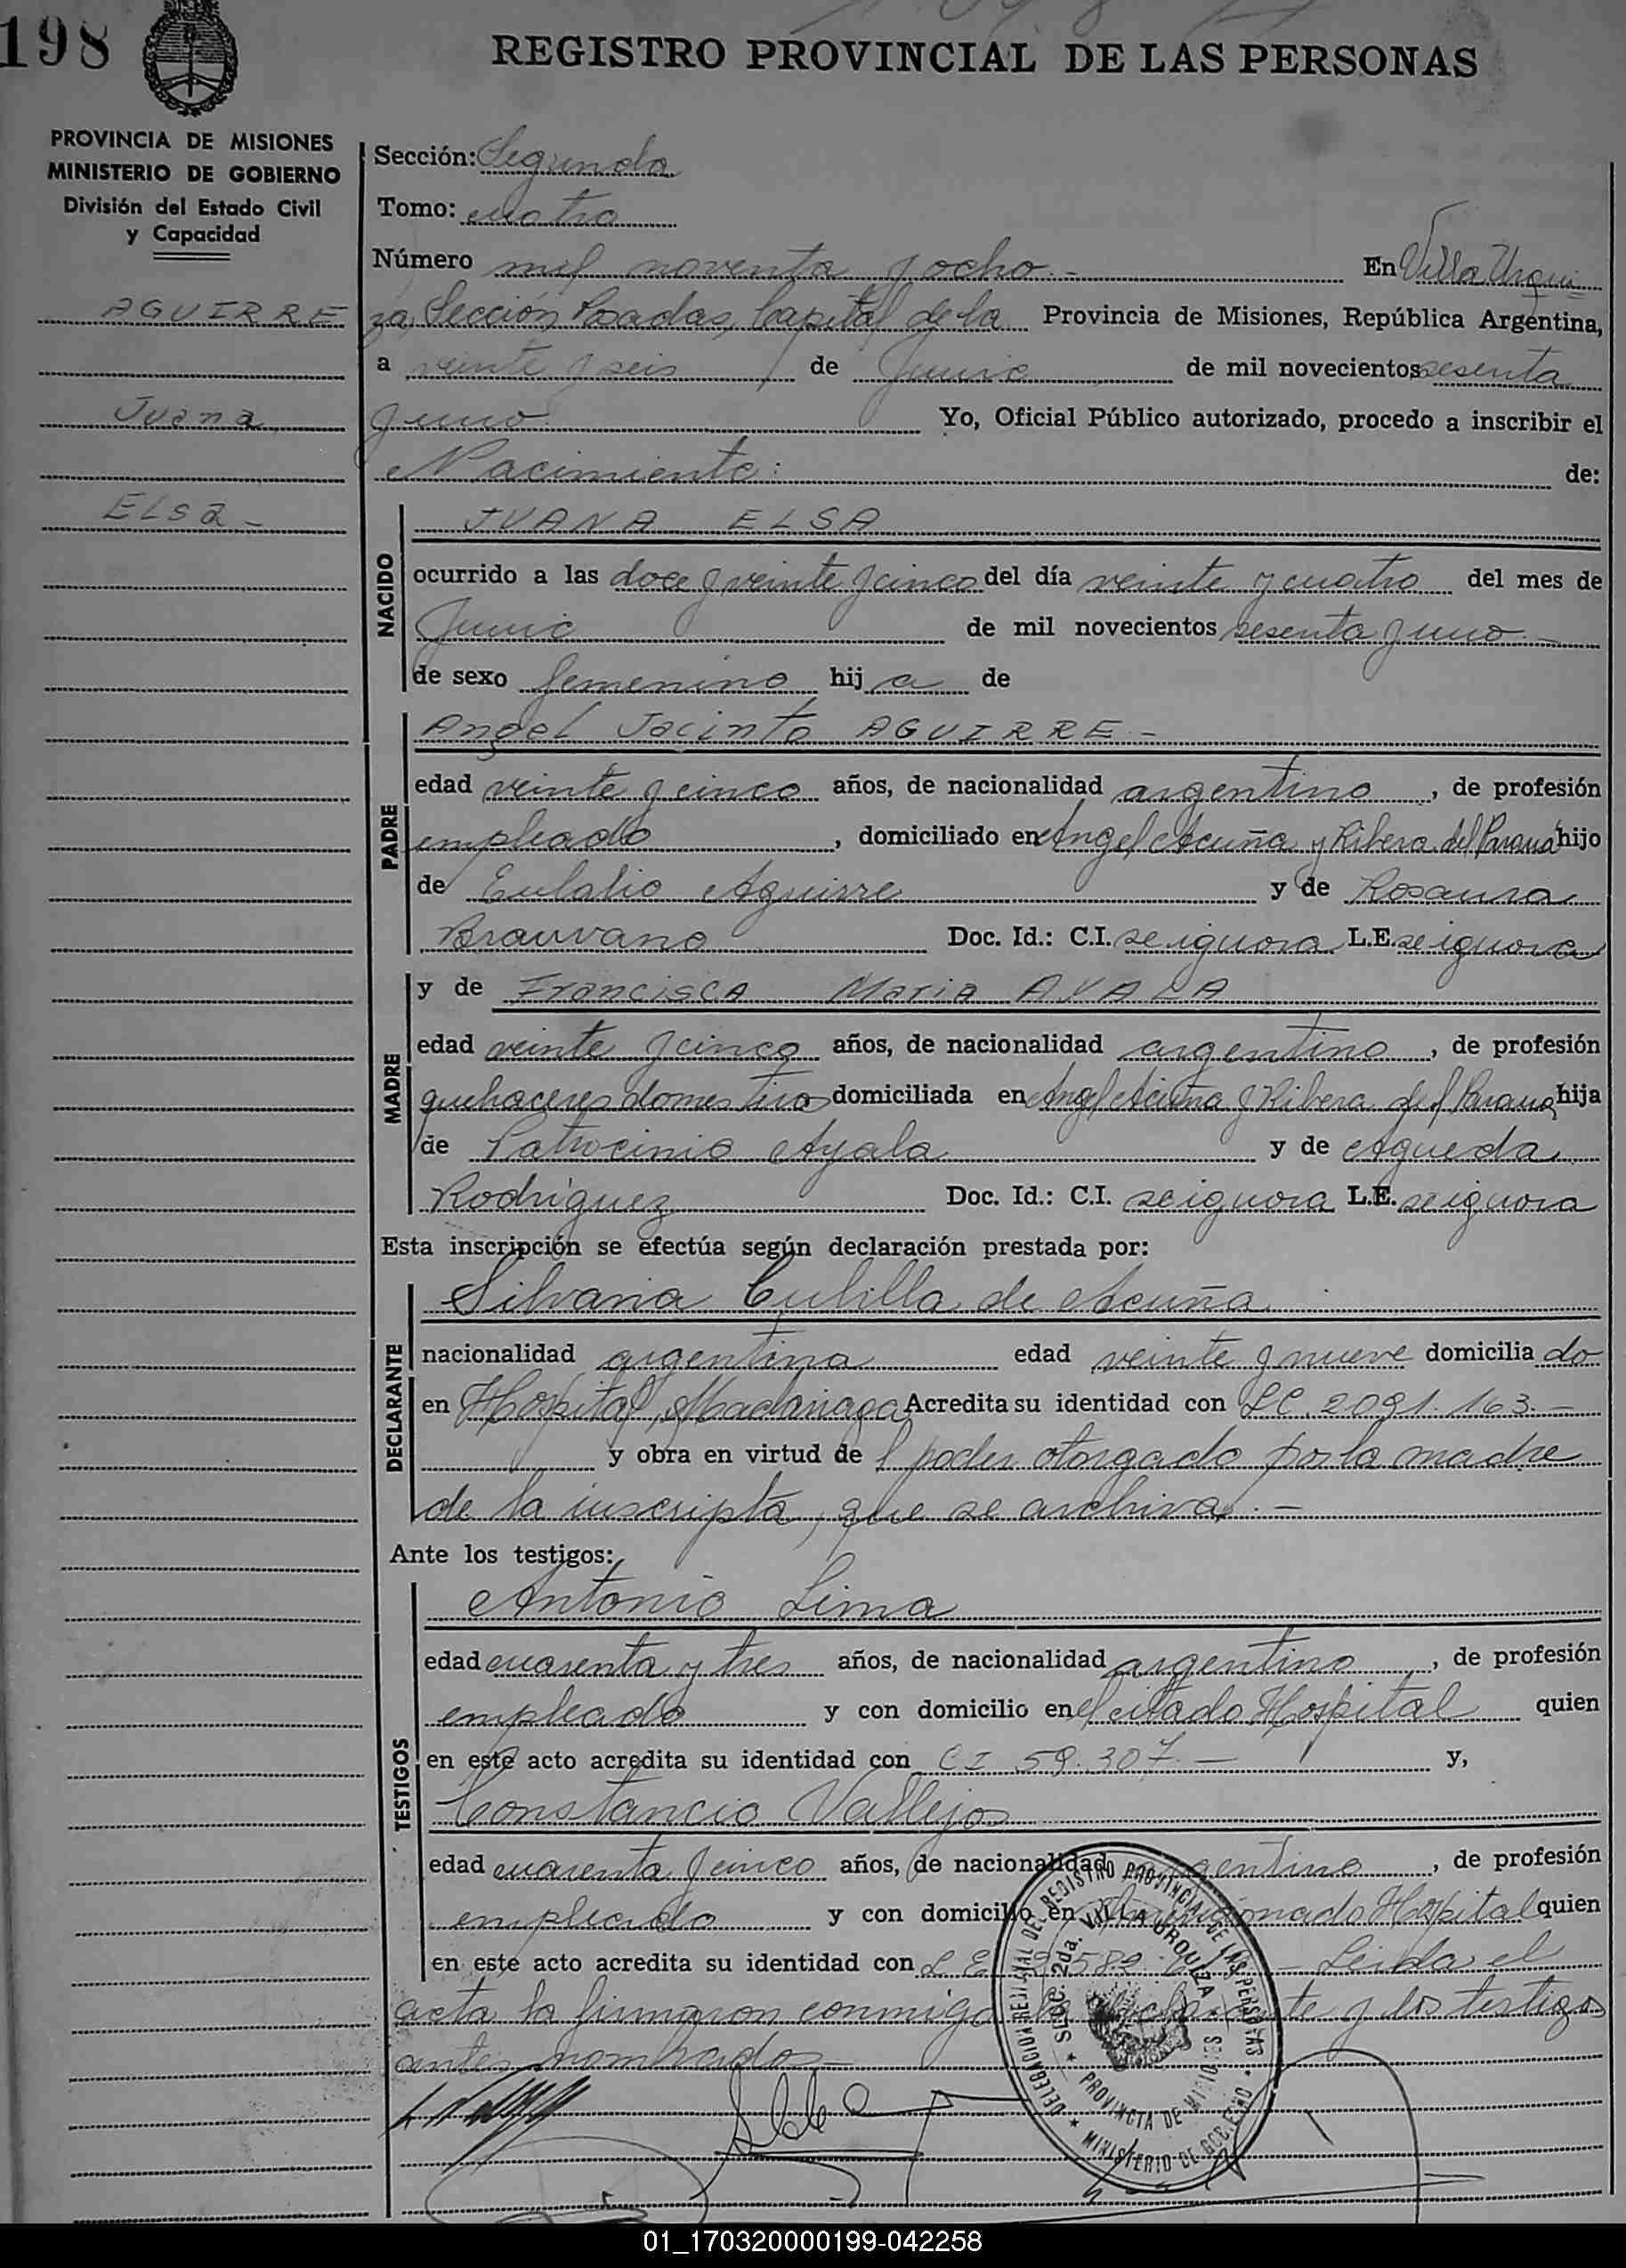 198
REGISTRO PROVINCIAL DE LAS PERSONAS
PROVINCIA DE MISIONES
MINISTERIO DE GOBIERNO
División del Estado Civil
y Capacidad
AGUIRRE
Juana
Elsa -
Sección: Segunda
Tomo: cuatro
Número mil noventa y ocho - En Villa Urqui
za, Sección Posadas, Capital de la Provincia de Misiones, República Argentina,
a veinte y seis de Junio de mil novecientos sesenta
y uno Yo, Oficial Público autorizado, procedo a inscribir el
Nacimiento: de:
NACIDO
JUANA ELSA
ocurrido a las doce y veinte y cinco del día veinte y cuatro del mes de
Junio de mil novecientos sesenta y uno -
de sexo femenino hij a de
PADRE
Angel Jacinto AGUIRRE -
edad veinte y cinco años, de nacionalidad argentino, de profesión
empleado, domiciliado en Angel Acuña y Ribera del Paraná hijo
de Eulalio Aguirre y de Rosaura
Doc. Id.: C.I. se ignora L.E. se ignora
MADRE
y de Francisca Maria AYALA
edad veinte y cinco años, de nacionalidad argentino, de profesión
quehaceres domesticos domiciliada en Angel Acuña y Ribera del Parana hija
de Patrocinio Ayala y de Agueda
Rodriguez Doc. Id.: C.I. se ignora L.E. se ignora
Esta inscripción se efectúa según declaración prestada por:
DECLARANTE
Silvana Cubilla de Acuña
nacionalidad argentina edad veinte y nueve domicilia do
en Hospital Madariaga Acredita su identidad con LC. 2091.163. -
y obra en virtud de l poder otorgado por la madre
de la inscripta, que se archiva. -
Ante los testigos:
TESTIGOS
Antonio Lima
edad cuarenta y tres años, de nacionalidad argentino, de profesión
empleado y con domicilio en el citado Hospital quien
en este acto acredita su identidad con CI 59.307 - y,
Constancio Vallejos
edad cuarenta y cinco años, de nacionalidad argentino, de profesión
empleado y con domicilio en mencionado Hospital quien
en este acto acredita su identidad con L E - Leida el
acta la firmaron conmigo la declarante y los testigos
antes nombrados -
DELEGACION REGIONAL DEL REGISTRO PROVINCIAL DE LAS PERSONAS
★ MINISTERIO DE GOBIERNO ★
SECC. 2da. VILLA URQUIZA
★ PROVINCIA DE MISIONES ★
01_170320000199-042258